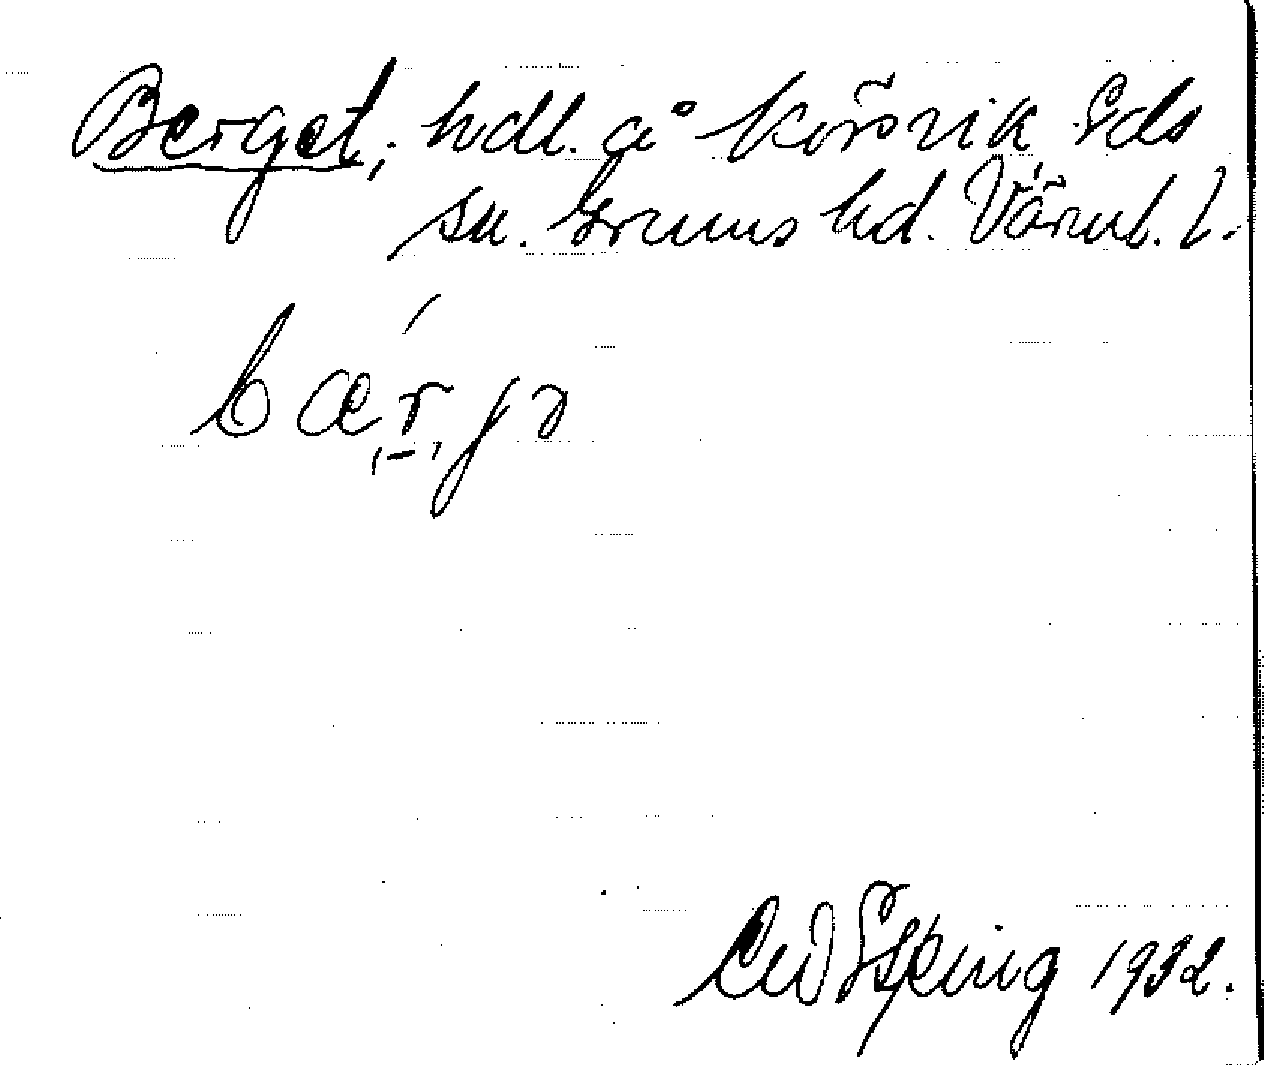 Berget, hdl. å Körsvik Eds
sn. Grums hd. Värml. l.
bæ´r̠, jə
Espling 1932.